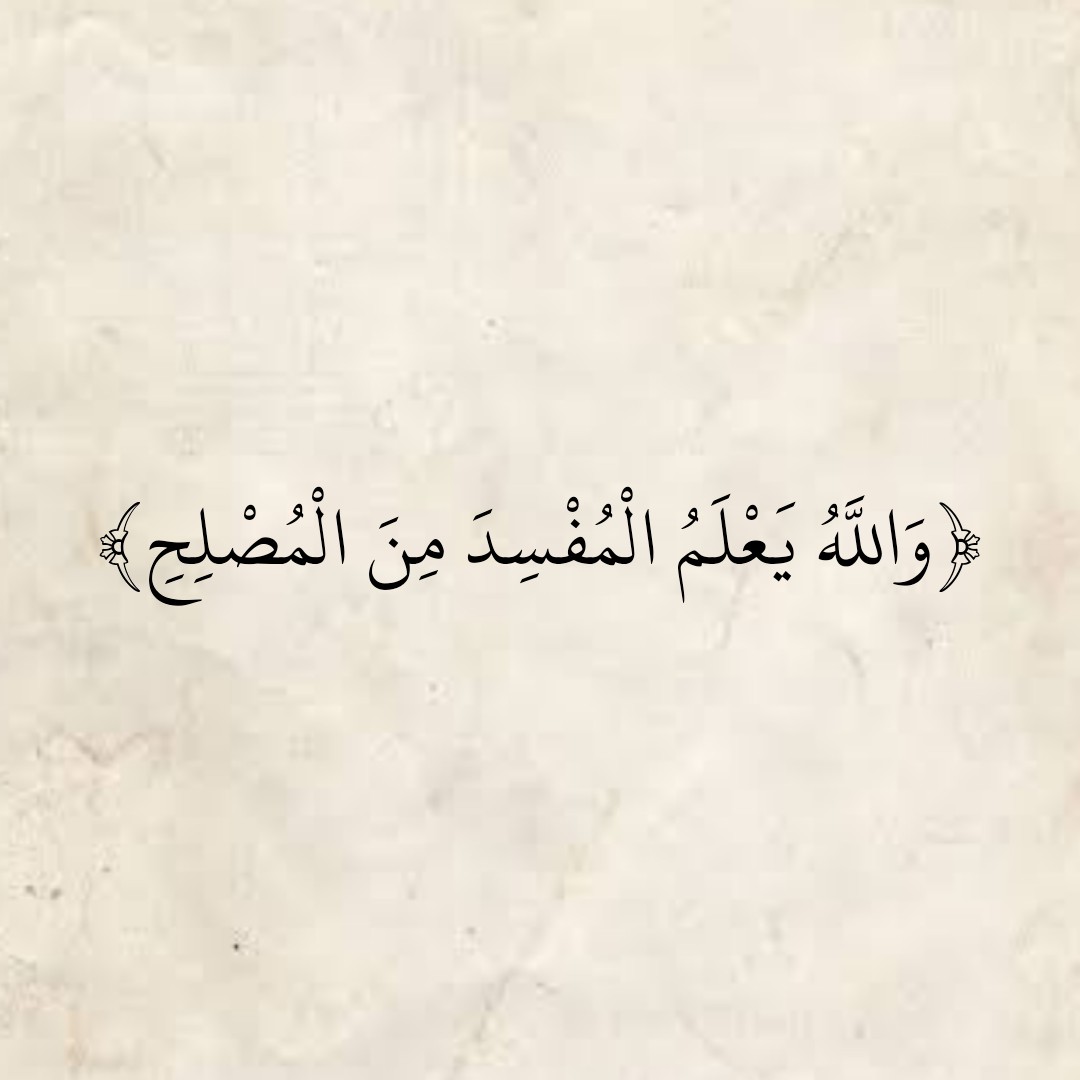 ﴿وَاللَّهُ يَعْلَمُ الْمُفْسِدَ مِنَ الْمُصْلِحِ﴾